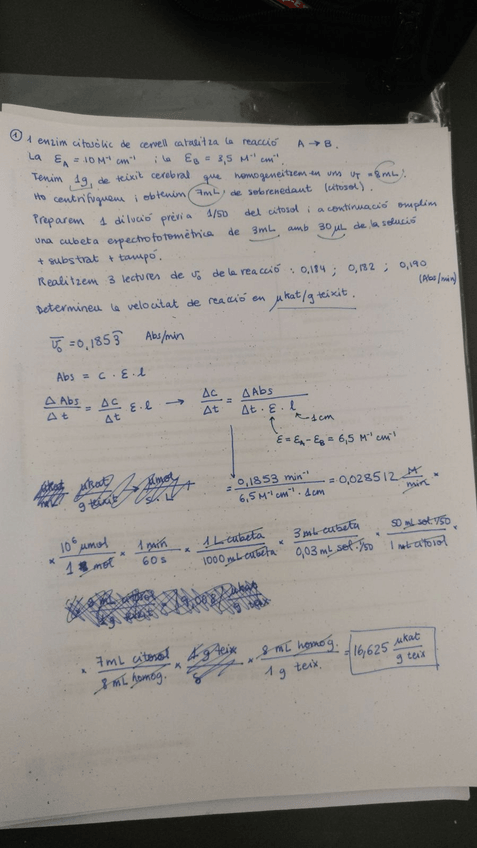 ① 1 enzim citosòlic de cervell catalitza la reacció A → B.
La ε_A = 10 M⁻¹ cm⁻¹ i la ε_B = 3,5 M⁻¹ cm⁻¹.
Tenim 1g de teixit cerebral que homogeneïtzem en uns V_T = 8mL.
Ho centrifuguem i obtenim 7mL de sobrenedant (citosol).
Preparem 1 dilució prèvia 1/50 del citosol i a continuació omplim
una cubeta espectrofotomètrica de 3mL amb 30 μL de la solució
+ substrat + tampó.
Realitzem 3 lectures de v₀ de la reacció : 0,184 ; 0,182 ; 0,190
(Abs/min)
Determineu la velocitat de reacció en μkat/g teixit.
v₀ = 0,1853 Abs/min
Abs = c · ε · l
ΔAbs/Δt = Δc/Δt ε · l → Δc/Δt = ΔAbs/Δt · ε · l
1cm
ε = ε_A - ε_B = 6,5 M⁻¹ cm⁻¹
μkat/g teixit → μmol
= 0,1853 min⁻¹/6,5 M⁻¹ cm⁻¹ · 1cm = 0,028512 M/min ×
× 10⁶ μmol/1 mol × 1 min/60 s × 1L cubeta/1000 mL cubeta × 3mL cubeta/0,03 mL sol. 1/50 × 50 mL sol. 1/50/1 mL citosol ×
× 7mL citosol/8 mL homog. × 1 g teix/8 × 8 mL homog./1 g teix. = 16,625 μkat/g teix